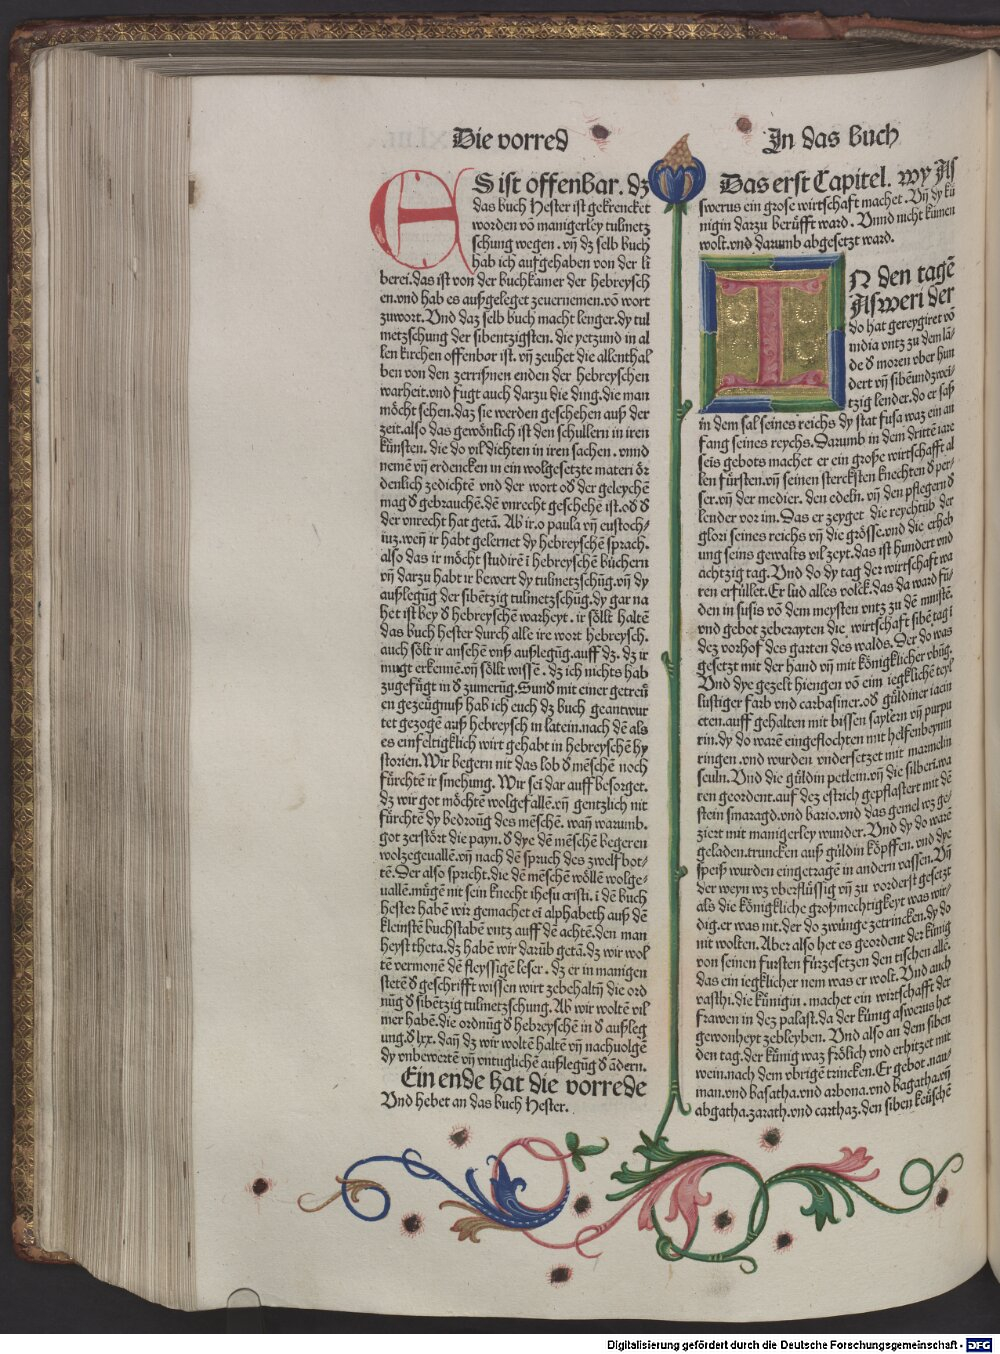 Die vorred
In das buch
ES ist offenbar. dz
das buch Hester ist gekrencket
worden vō manigerley tulmetz
schung wegen. vñ dz selb buch
hab ich aufgehaben von der li
berei. das ist von der buchkamer der hebreysch
en. vnd hab es außgeleget zeuernemen. vō wort
zuwort. Vnd daz selb buch macht lenger. dy tul
metzschung der sibentzigsten. die yetzund in al
len kirchen offenbar ist. vñ zeuhet die allenthal
ben von den zerrißnen enden der hebreyschen
warheit. vnd fugt auch darzu die ding. die man
möcht sehen. daz sie werden geschehen auß der
zeit. also das gewönlich ist den schullern in iren
künsten. die do vil dichten in iren sachen. vnnd
nemē vñ erdencken in ein wolgesetzte materi ör
denlich zedichtē vnd der wort oď der geleychē
mag ď gebrauchē. dē vnrecht geschehē ist. oď ď
der vnrecht hat getā. Ab ir. o paula vñ eustoch/
iuz. weñ ir habt gelernet dy hebreyschē sprach.
also das ir möcht studirē ī hebreyschē büchern
vñ darzu habt ir bewert dy tulmetzschūg. vñ dy
außlegūg der sibētzig tulmetzschūg. dy gar na
het ist bey ď hebreyschē warheyt. ir söllt haltē
das buch hester durch alle ire wort hebreysch.
auch sölt ir ansehē vnß außlegūg. auff dz. dz ir
mugt erkennē. vñ söllt wissē. dz ich nichts hab
zugefügt in ď zumerūg. Sund mit einer getreü
en gezeügnuß hab ich euch dz buch geantwur
tet gezogē auß hebreysch in latein. nach dē als
es einfeltigklich wirt gehabt in hebreyschē hy
storien. Wir begern nit das lob ď mēschē noch
fürchtē ir smehung. Wir sei dar auff besorget.
dz wir got möchtē wolgefallē. vñ gentzlich nit
fürchtē dy bedroūg des mēschē. wañ warumb.
got zerstört die payn. ď dye dē mēschē begeren
wolzegeuallē. vñ nach dē spruch des zwelfbot-
tē. Der also spricht. die dē mēschē wöllē wolge-
uallē. mügē nit sein knecht ihesu cristi. ī dē buch
hester habē wir gemachet eī alphabeth auß dē
kleinstē buchstabē vntz auff dē achtē. den man
heyst theta. dz habē wir darūb getā. dz wir wol
tē vermonē dē fleyssigē leser. dz er in manigen
stetē ď geschrifft wissen wirt zebehaltñ die ord
nūg ď sibētzig tulmetzschung. Ab wir woltē vil
mer habē. die ordnūg ď hebreyschē in ď außleg
ung. ď lxx. dañ dz wir woltē haltē vñ nachuolgē
dy vnbewertē vñ vntuglichē außlegūg ď ādern.
Ein ende hat die vorrede
Vnd hebet an das buch Hester.
Das erst Capitel. wy As
swerus ein grose wirtschaft machet. Vñ dy kü
nigin darzu berüfft ward. Vnnd nicht kümen
wolt. vnd darumb abgesetzt ward.
IN den tagē
Asweri der
do hat gereygiret vō
india vntz zu dem lā-
de ď moren vber hun
dert vñ sibēundzwei-
tzig lender. do er saß
in dem sal seines reichs dy stat susa waz ein an
fang seines reychs. Darumb in dem drittē iare
seīs gebots machet er ein große wirtschafft al
len fürsten. vñ seinen stercksten knechten ď per-
ser. vñ der medier. den edeln. vñ den pflegern ď
lender vor im. Das er zeyget die reychtūb der
glori seines reichs vñ die grösse. vnd die erheb
ung seins gewalts vil zeyt. das ist hundert vnd
achtzig tag. Vnd do dy tag der wirtschaft wa
ren erfüllet. Er lud alles volck. das da ward fū-
den in susis vō dem meysten vntz zu dē mīnstē.
vnd gebot zeberayten die wirtschaft sibē tag ī
dez vorhof des garten des walds. Der do was
gesetzt mit der hand vñ mit königklicher vbūg.
Vnd dye gezelt hiengen vō eim iegklichē teyl
lustiger farb vnd carbasiner. oď güldiner iacin
cten. auff gehalten mit bissen saylern vñ purpu
rin. dy do warē eingeflochten mit helfenbeynin
ringen. vnd wurden vndersetzet mit marmelin
seuln. Vnd die güldin petlein. vñ die silberī. wa
ren geordent. auf dez estrich gepflastert mit dē
stein smaragd. vnd bario. vnd das gemel wz ge-
ziert mit manigerley wunder. Vnd dy do warē
geladen. truncken auß güldin köpffen. vnd dye
speiß wurden eingetragē in andern vassen. Vñ
der weyn wz vberflüssig vñ zu vorderst gesetzt
als die königkliche großmechtigkeyt was wir-
dig. er was nit. der do zwūnge zetrincken. dy do
nit wolten. Aber also het es geordent der künig
von seinen fursten fürzesetzen den tischen allē.
das ein iegklicher nem was er wolt. Vnd auch
vasthi. die künigin. machet ein wirtschafft der
frawen in dez palast. da der künig aswerus het
gewonheyt zebleyben. Vnd also an dem siben
den tag. der künig waz frölich vnd erhitzet mit
wein. nach dem vbrigē trincken. Er gebot. nau-
man. vnd basatha. vnd arbona. vnd bagatha. vñ
abgatha. zarath. vnd carthaz. den siben keüsche
Digitalisierung gefördert durch die Deutsche Forschungsgemeinschaft - DFG